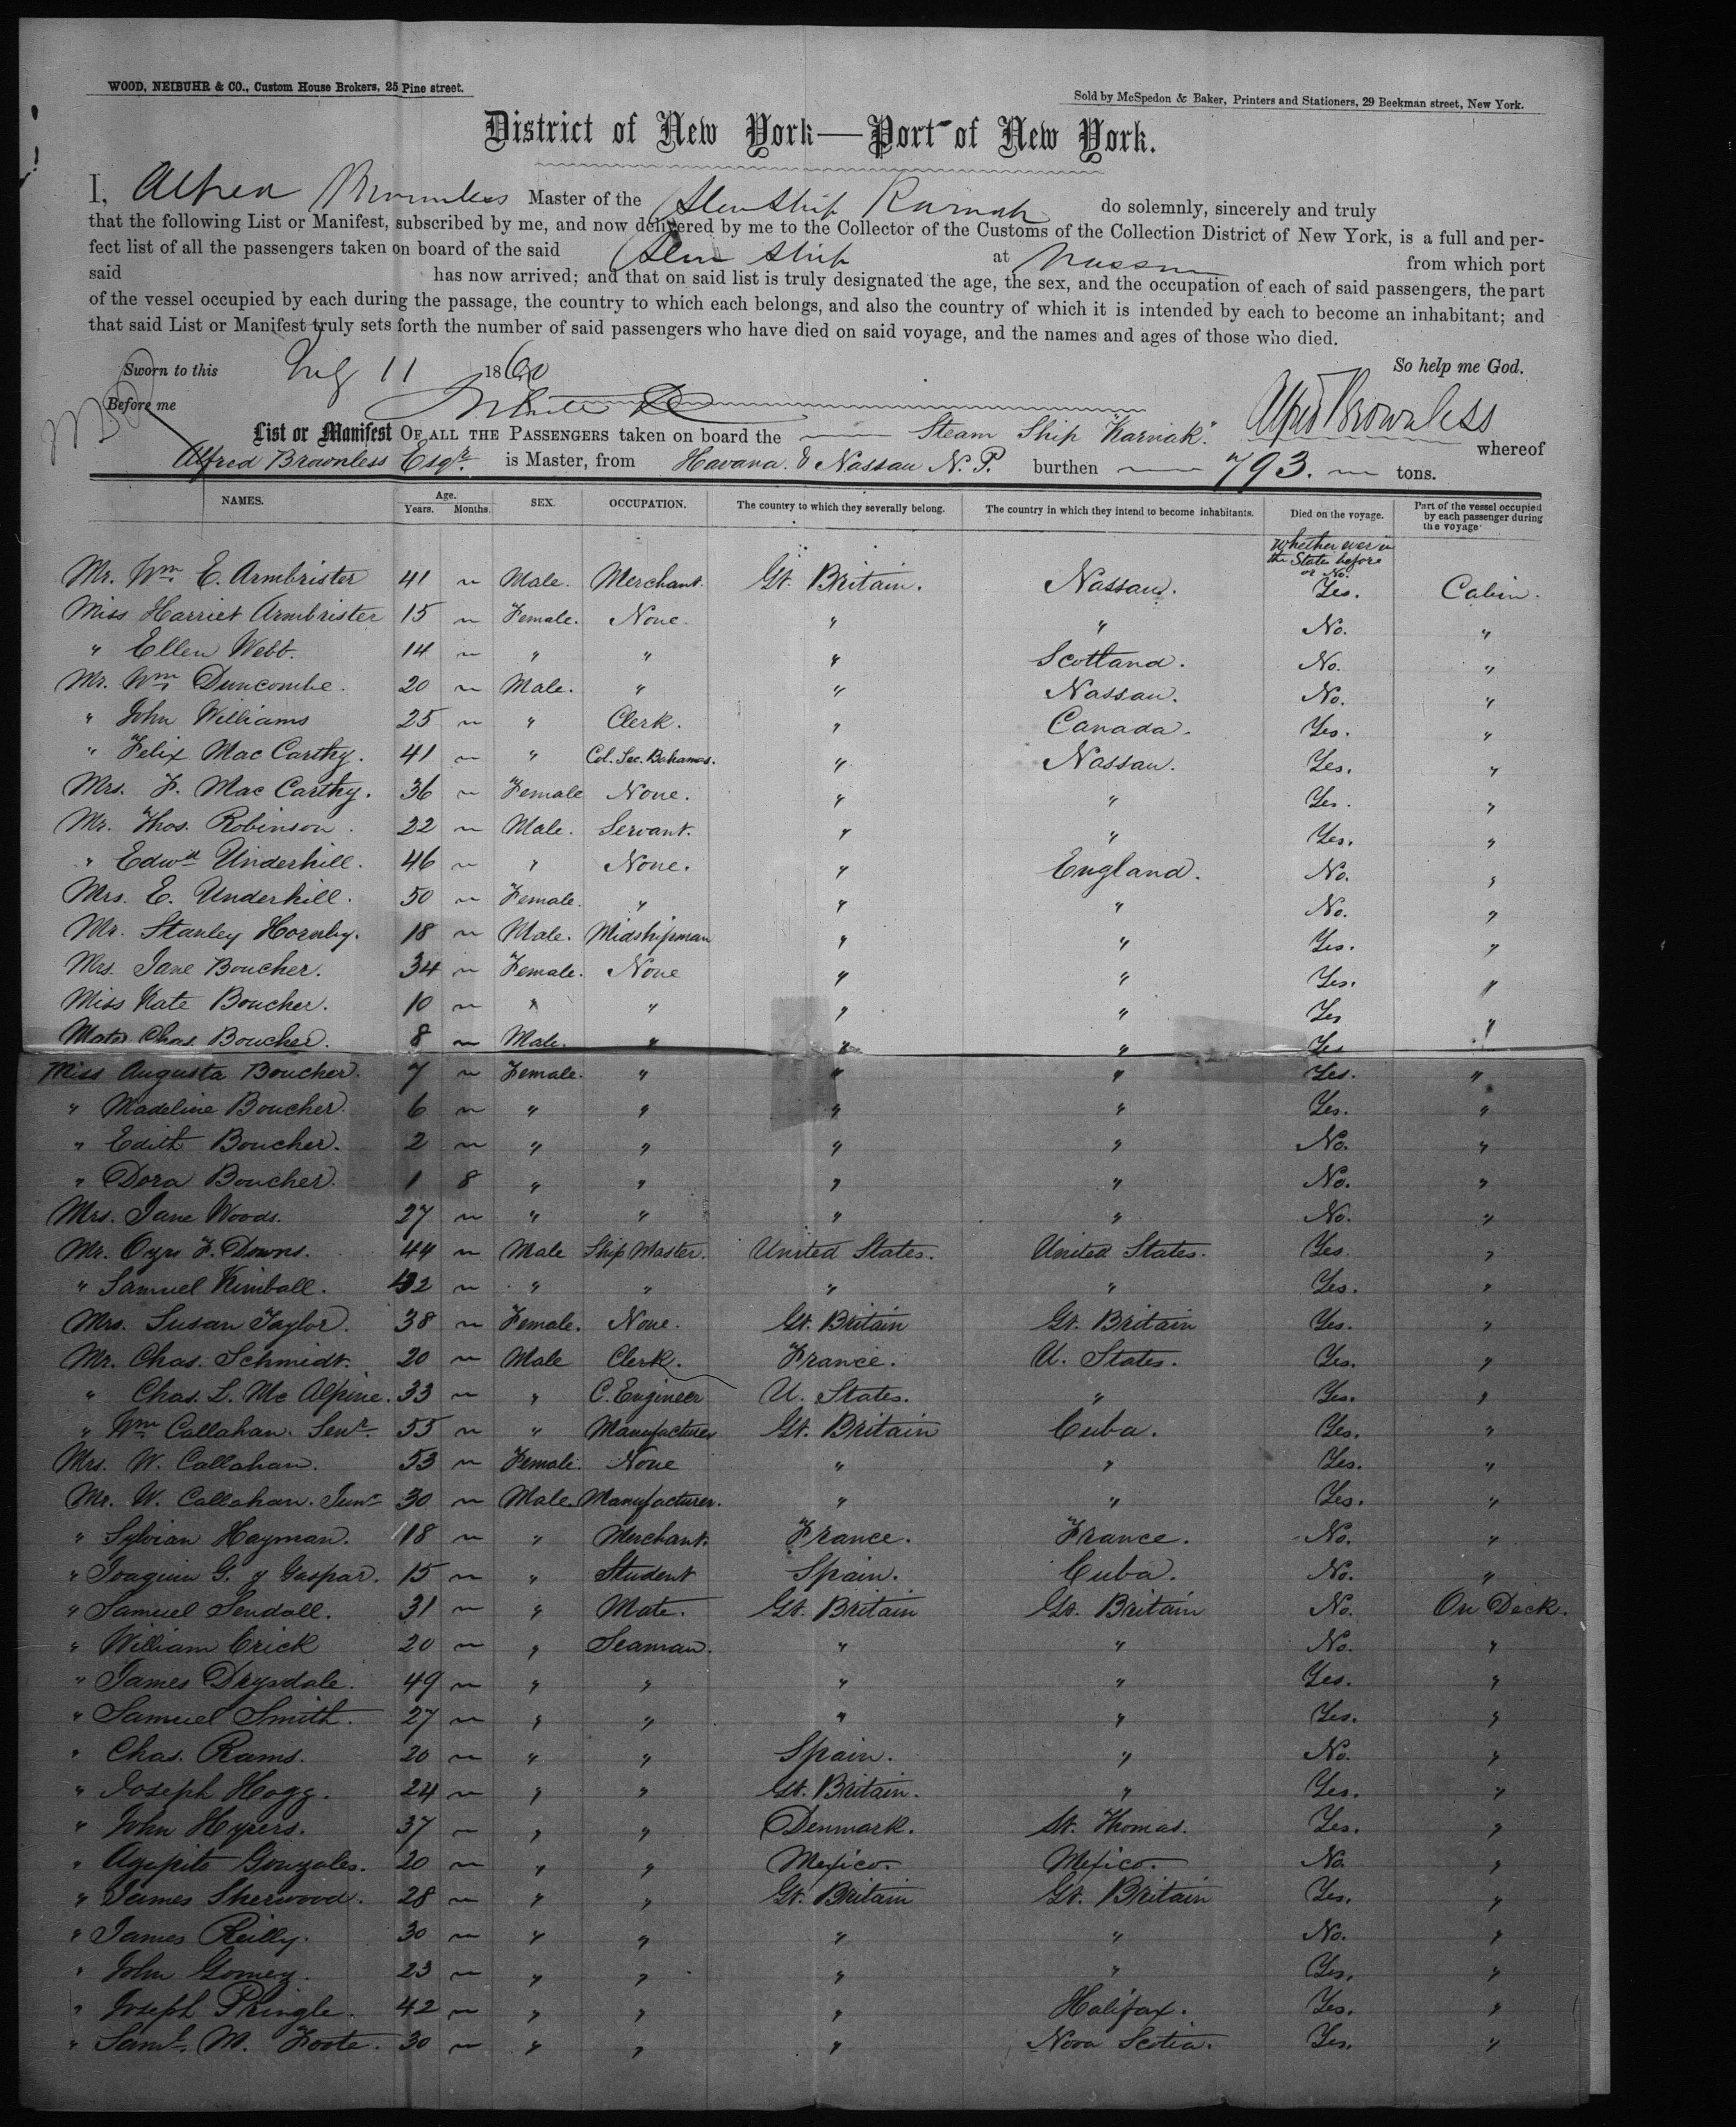 WOOD, NEIBUHR & CO., Custom House Brokers, 25 Pine street.
Sold by McSpedon & Baker, Printers and Stationers, 29 Beekman street, New York.
District of New York—Port of New York.
I, Alfred Brownless Master of the Steam Ship Karnak do solemnly, sincerely and truly
that the following List or Manifest, subscribed by me, and now delivered by me to the Collector of the Customs of the Collection District of New York, is a full and per-
fect list of all the passengers taken on board of the said Steam Ship at Nassau from which port
said has now arrived; and that on said list is truly designated the age, the sex, and the occupation of each of said passengers, the part
of the vessel occupied by each during the passage, the country to which each belongs, and also the country of which it is intended by each to become an inhabitant; and
that said List or Manifest truly sets forth the number of said passengers who have died on said voyage, and the names and ages of those who died.
Sworn to this 11 1860 So help me God.
Before me Alfred Brownless
List or Manifest OF ALL THE PASSENGERS taken on board the Steam Ship "Karnak". whereof
Alfred Brownless Esqr. is Master, from Havana & Nassau N. P. burthen 793. tons.
NAMES. Age. Years. Months. SEX. OCCUPATION. The country to which they severally belong. The country in which they intend to become inhabitants. Died on the voyage. Part of the vessel occupied by each passenger during the voyage
Whether ever in the State before or No.
Mr. Wm. E. Armbrister 41 ~ Male. Merchant. Gt. Britain. Nassau. Yes. Cabin.
Miss Harriet Armbrister 15 ~ Female. None. " " No. "
" Ellen Webb. 14 ~ " " " Scotland. No. "
Mr. Wm Duncombe. 20 ~ Male. " " Nassau. No. "
" John Williams 25 ~ " Clerk. " Canada. Yes. "
" Felix Mac Carthy. 41 ~ " Col. Sec. Bahamas. " Nassau. Yes. "
Mrs. F. Mac Carthy. 36 ~ Female None. " " Yes. "
Mr. Thos. Robinson. 22 ~ Male. Servant. " " Yes. "
" Edwd Underhill. 46 ~ " None. " England. No. "
Mrs. E. Underhill. 50 ~ Female. " " " No. "
Mr. Stanley Hornby. 18 ~ Male. Midshipman " " Yes. "
Mrs. Jane Boucher. 34 ~ Female. None " " Yes. "
Miss Kate Boucher. 10 ~ " " " " Yes "
Mastr Chas. Boucher. 8 ~ Male. " " " Yes "
Miss Augusta Boucher. 7 ~ Female. " " " Yes. "
" Madeline Boucher. 6 ~ " " " " Yes. "
" Edith Boucher. 2 ~ " " " " No. "
" Dora Boucher. 1 8 " " " " No. "
Mrs. Jane Woods. 27 ~ " " " " No. "
Mr. F. Downs. 44 ~ Male Ship Master. United States. United States. Yes. "
" Samuel Kimball. 42 ~ " " " " Yes. "
Mrs. Susan Taylor. 38 ~ Female. None. Gt. Britain Gt. Britain Yes. "
Mr. Chas. Schmidt. 20 ~ Male Clerk. France. U. States. Yes. "
" Chas. L. Mc Alpine. 33 ~ " C. Engineer U. States. " Yes. "
" Wm Callahan. Senr. 55 ~ " Manufacturer Gt. Britain Cuba. Yes. "
Mrs. W. Callahan. 53 ~ Female. None " " Yes. "
Mr. W. Callahan. Junr 30 ~ Male. Manufacturer. " " Yes. "
" Sylvian Hayman. 18 ~ " Merchant. France. France. No. "
" Joaquin G. y Gaspar. 15 ~ " Student Spain. Cuba. No. "
" Samuel Sendall. 31 ~ " Mate. Gt. Britain Gt. Britain No. On Deck.
" William Crick 20 ~ " Seaman. " " No. "
" James Drysdale. 49 ~ " " " " Yes. "
" Samuel Smith. 27 ~ " " " " Yes. "
" Chas. Rams. 20 ~ " " Spain. " No. "
" Joseph Hogg. 24 ~ " " Gt. Britain. " Yes. "
" John Hyers. 37 ~ " " Denmark. St. Thomas. Yes. "
" Agapito Gonzales. 20 ~ " " Mexico. Mexico. No. "
" James Sherwood. 28 ~ " " Gt. Britain Gt. Britain Yes. "
" James Reilly. 30 ~ " " " " No. "
" John Gomez. 23 ~ " " " " Yes. "
" Joseph Pringle. 42 ~ " " " Halifax. Yes. "
" Saml. M. Foote. 30 ~ " " " Nova Scotia. Yes. "